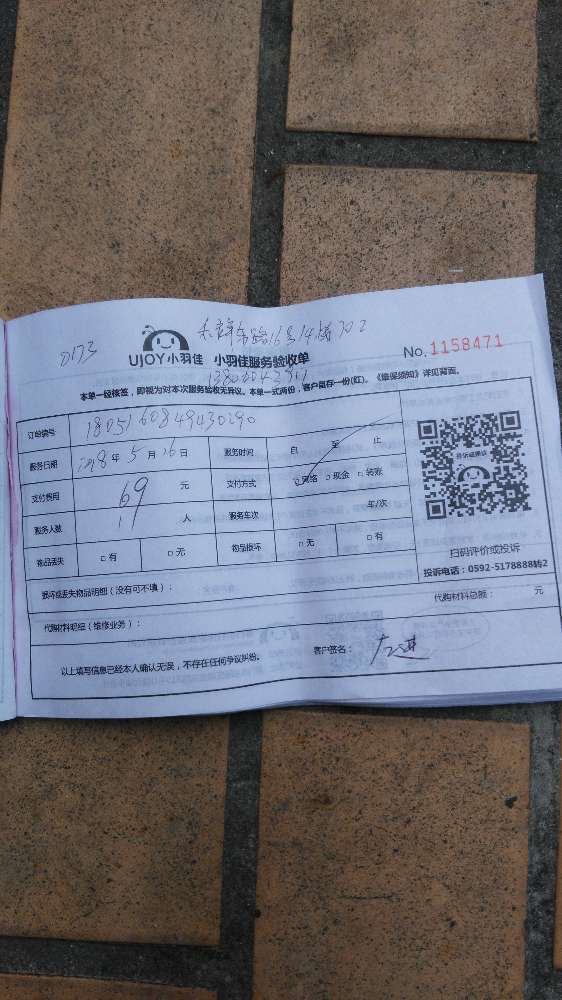 0173
UJOY小羽佳 小羽佳服务验收单
No. 1158471
本单一经核签，即视为对本次服务验收无异议。本单一式两份，客户留存一份(红)。《维保须知》详见背面。
订单编号 1805160849430290
服务日期 2018年5月16日 服务时间 自 至 止
支付费用 69 元 支付方式 □网络 □现金 □转账
服务人数 人 服务车次 车/次
物品丢失 □有 □无 物品损坏 □无 □有
损坏或丢失物品明细（没有可不填）：
代购材料明细（维修业务）： 代购材料总额： 元
以上填写信息已经本人确认无误，不存在任何争议纠纷。 客户签名：
投诉或建议
扫码评价或投诉
投诉电话：0592-5178888转2